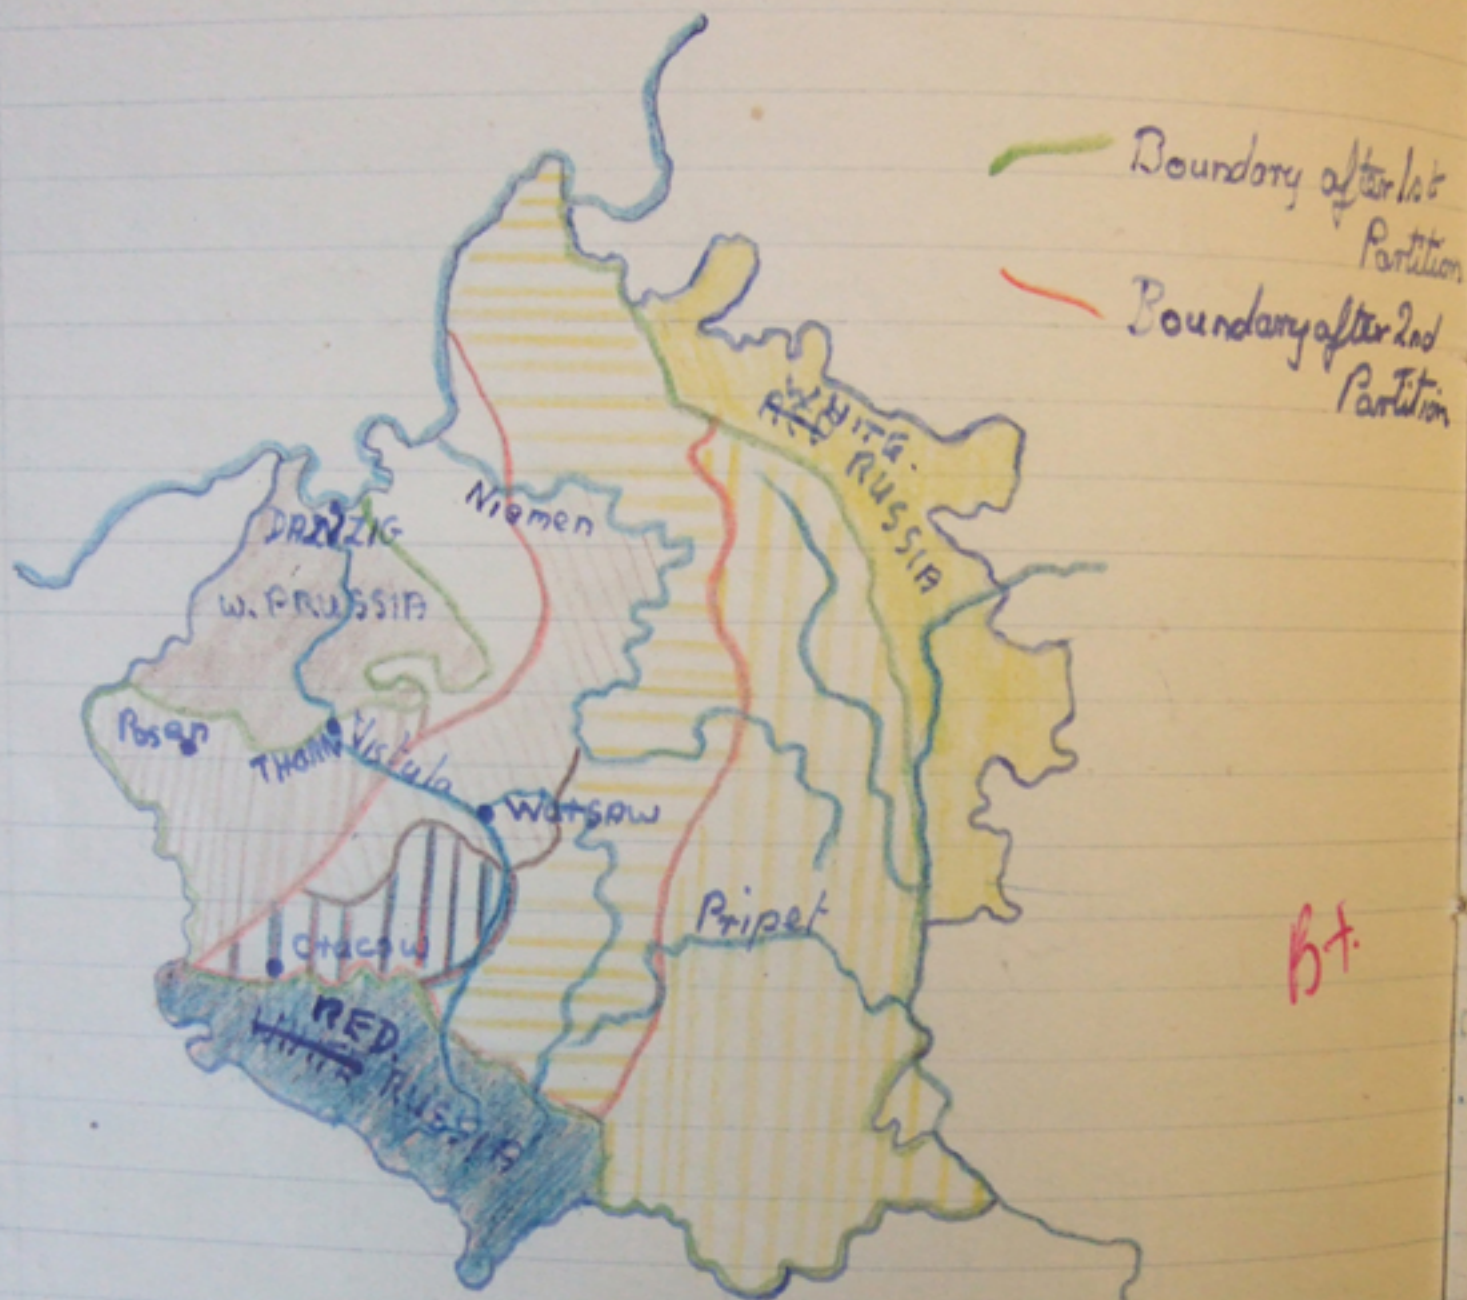 Boundary after 1st
Partition
Boundary after 2nd
Partition
WHITE.
RUSSIA
Niemen
DANZIG
W. PRUSSIA
Posen
THORN
Vistula
Warsaw
Pripet
Cracow
RED.
RUSSIA
B+.